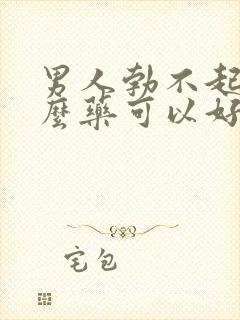 男人勃不起
麼藥可以好
宅包